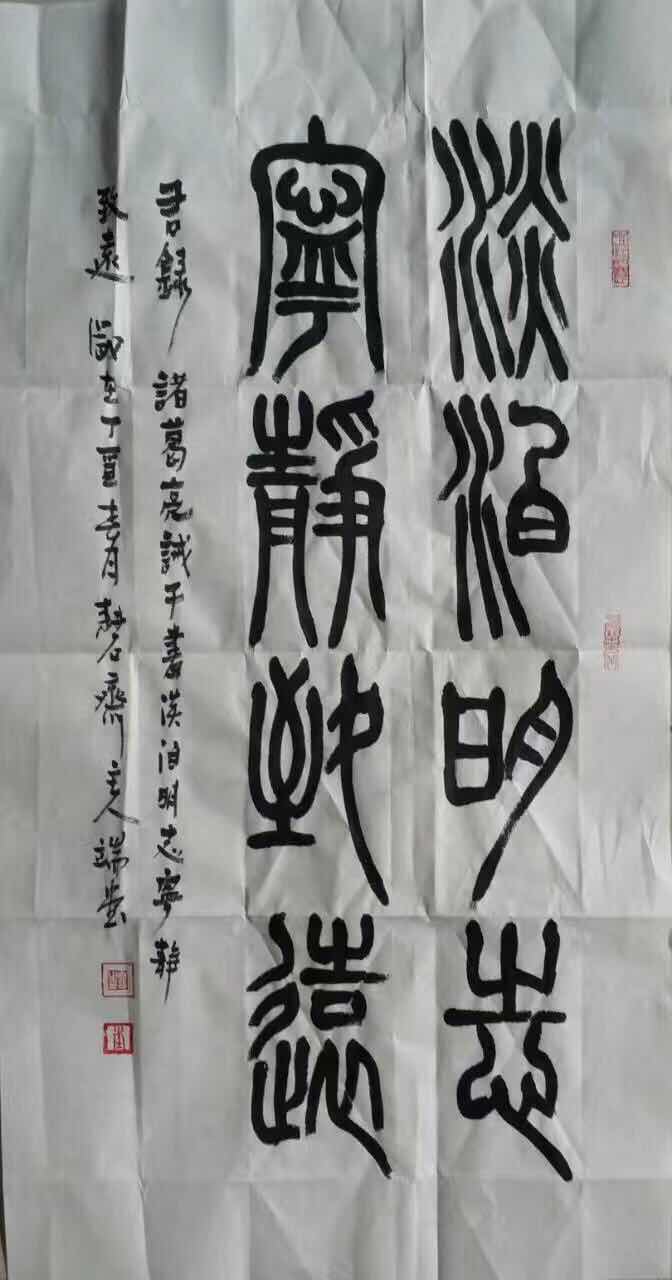 淡泊明志
寧靜致遠
君錄諸葛亮誡子書淡泊明志寧静
致遠歲在丁酉青月磬齋主人端堂